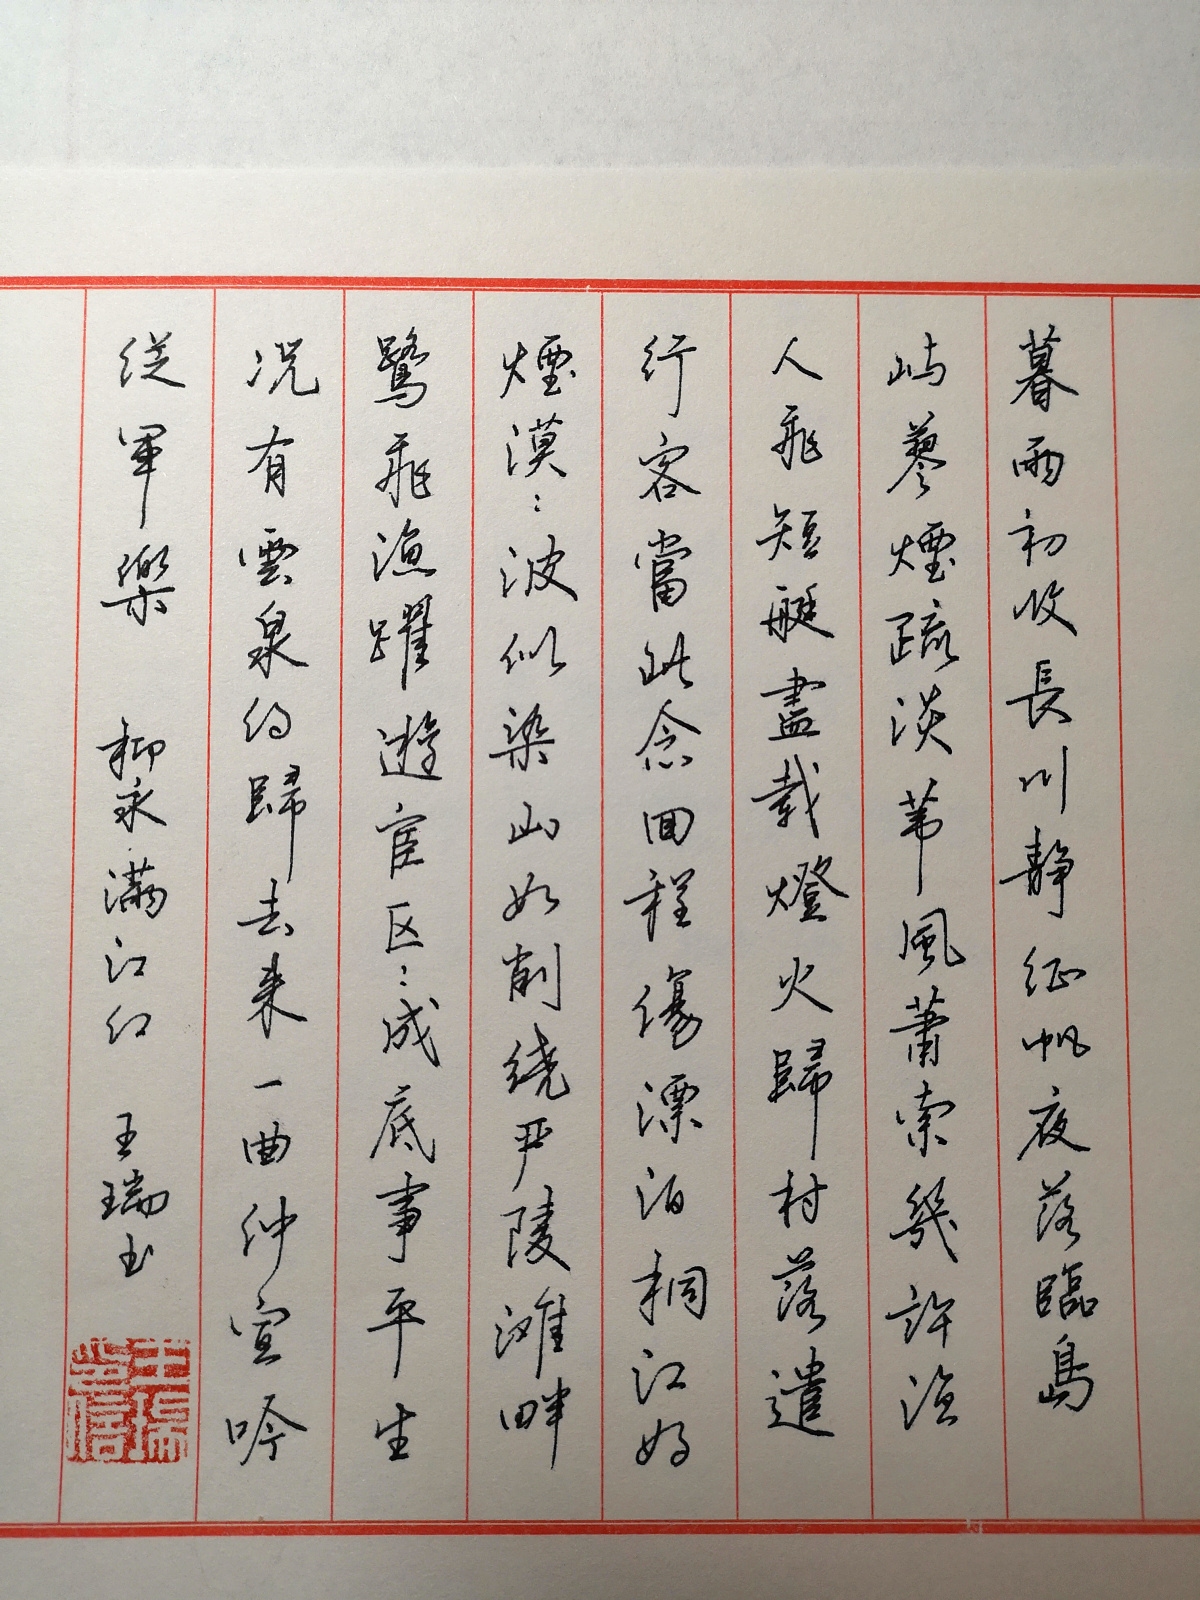 暮雨初收長川靜征帆夜落臨島
嶼蓼煙疏淡苇風蕭索幾許漁
人飛短艇盡载燈火歸村落遣
行客當此念回程傷漂泊桐江好
煙漠：波似染山如削绕严陵滩畔
鷺飛漁躍遊宦区：成底事平生
况有雲泉约歸去来一曲仲宣吟
従軍樂 柳永满江红 王瑞书